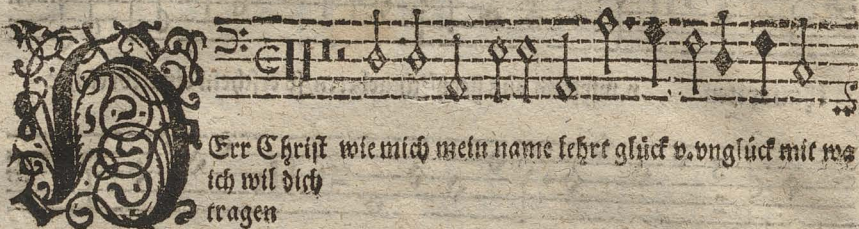 HErr Christ wie mich mein name lehrt glück v. vnglück mit wa
ich wil dich
tragen